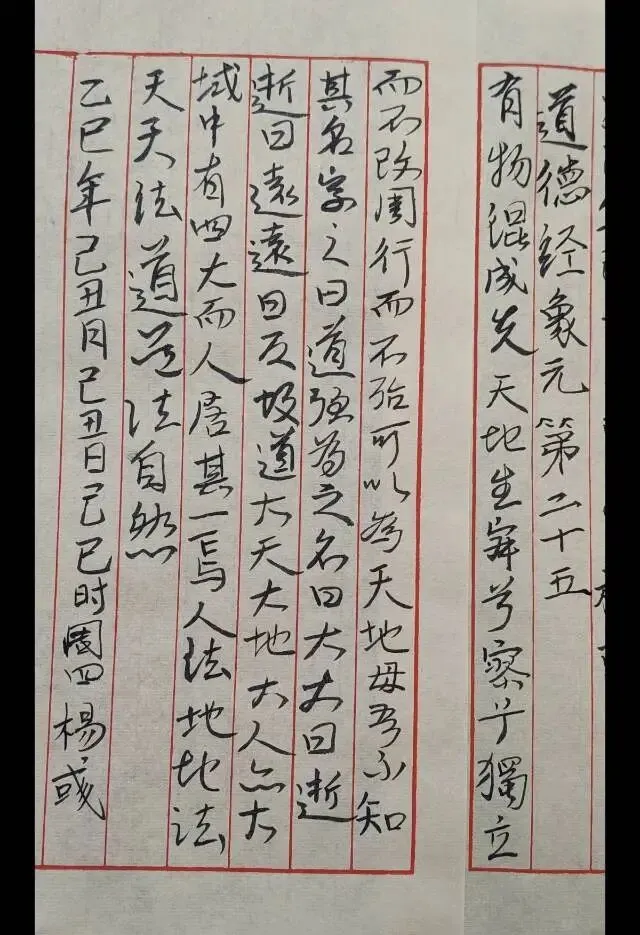 道德经象元第二十五
有物混成先天地生寂兮寥兮獨立
而不改周行而不殆可以為天地母吾不知
其名字之曰道强為之名曰大大曰逝
逝曰遠遠曰反故道大天大地大人亦大
域中有四大而人居其一焉人法地地法
天天法道道法自然
乙巳年己丑月己丑日己巳时周四楊彧